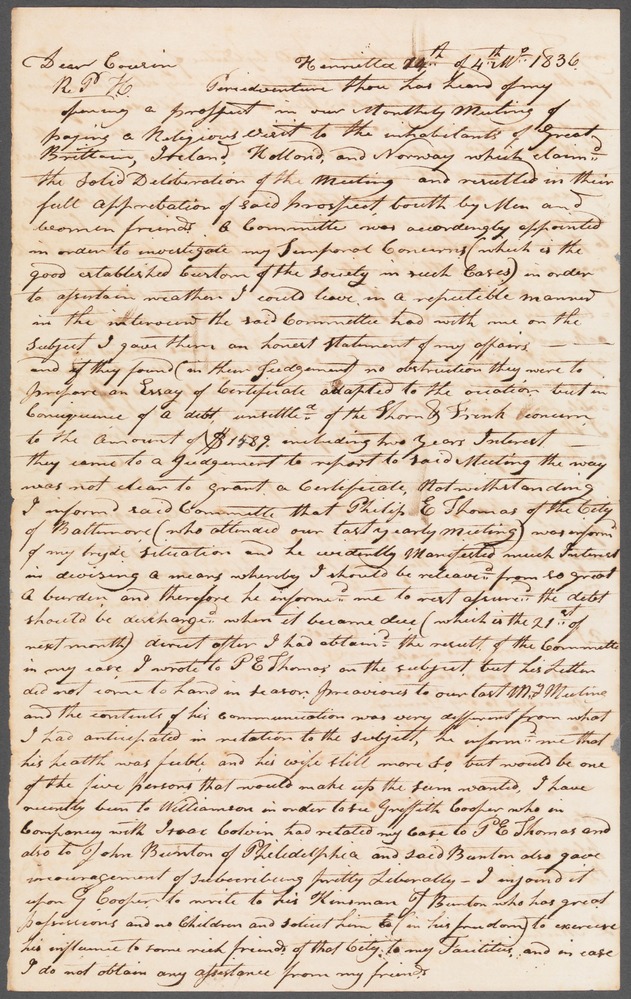 Dear Cousin Henrietta 24th of 4th Mo. 1836
R. P. H Peradventure thou has heard of my
opening a prospect in our Monthly Meeting of
paying a Religious visit to the inhabitants of Great
Brittain, Ireland, Holland, and Norway which claimd
the Solid Deliberation of the Meeting and resulted in their
full apprebation of said Prospect, bouth by Men and
women friends. A Committe was accordingly appointed
in order to investigate my Temporal Concerns (which is the
good established Custom of the Society in such Cases) in order
to assertain weather I could leave in a reputible manner
in the interview the said Committee had with me on the
Subject I gave them an honest Statement of my affairs —
and if they found (in their Judgement) no obstruction they were to
prepare an Essay of Certificate adapted to the ocation but in
Consequence of a debt unsettled of the Thorn & Frink concern
to the amount of $1589. including two years Interest —
they came to a Judgement to report to said Meeting the way
was not clear to grant a Certificate, Notwithstanding
I informd said Committe that Philip E Thomas of the City
of Baltimore (who attended our last yearly Meeting) was informd
of my tryde Situation and he evidently Manifested much Interest
in devising a means whereby I should be releavd from so great
a burden and therefore he informd me to rest assured the debt
should be discharged when it became due (which is the 21st of
next month) direct after I had obtaind the result of the Committe
in my case I wrote to P E Thomas on the subject but his Letter
did not come to hand in season preavious to our last M.y Meeting
and the contents of his communication was very different from what
I had anticepated in relation to the subject, he informd me that
his health was feeble and his wife still more so, but would be one
of the five persons that would make up the sum wanted, I have
recently been to Williamson in order to see Griffith Cooper who in
Company with Isaac Colvin had related my Case to P E Thomas and
also to John Bunton of Philidelphia and said Bunton also gave
incouragement of subscribing pretty Liberally — I injoind it
upon G Cooper to write to his Kinsman J Bunton who has great
possessions and no Children and solicit him (in his freedom) to exercise
his influence to some rich friends of that City to my Facilities, and in case
I do not obtain any assistance from my friends